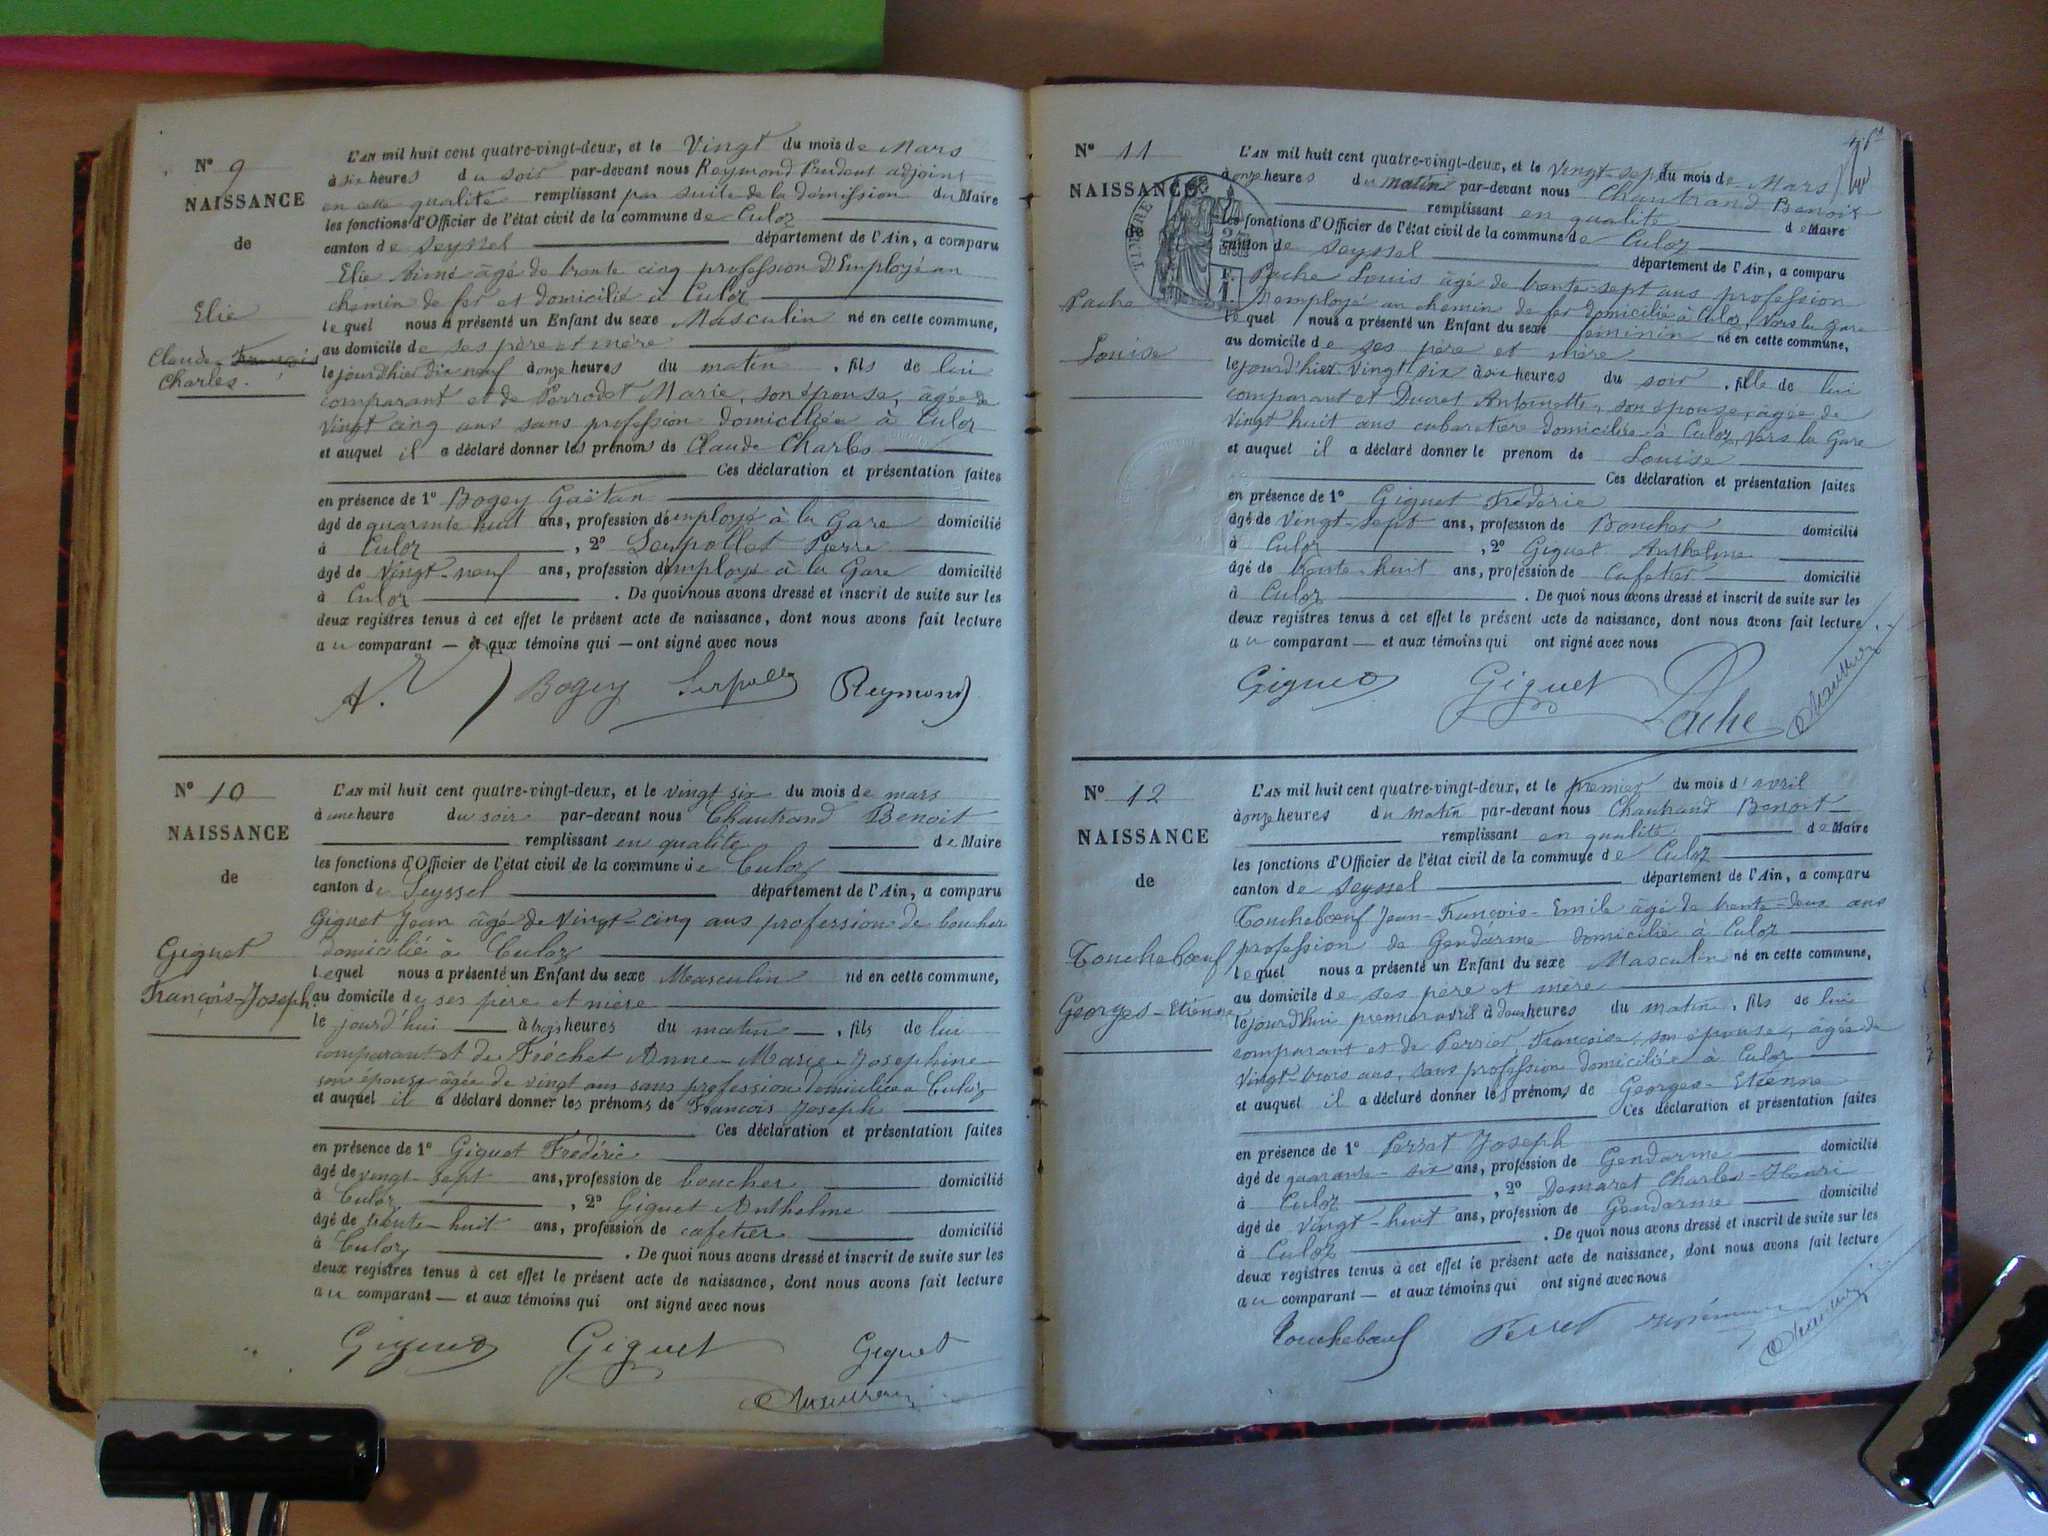 N° 9
NAISSANCE
de
Elie
Claude François
Charles.
L'AN mil huit cent quatre-vingt-deux, et le Vingt du mois de Mars
à six heures du soir par-devant nous Reymond Prudent adjoint
en cette qualité remplissant par suite de la démission du Maire
les fonctions d'Officier de l'état civil de la commune de Culoz
canton de Seyssel département de l'Ain, a comparu
Elie Aimé âgé de trente cinq profession d'Employé au
chemin de fer et domicilié à Culoz
lequel nous a présenté un Enfant du sexe Masculin né en cette commune,
au domicile de ses père et mère
le jourd'hier dix neuf à onze heures du matin, fils de lui
comparant et de Perrodet Marie, son épouse, âgée de
Vingt cinq ans sans profession domiciliée à Culoz
et auquel il a déclaré donner les prénoms de Claude Charles
Ces déclaration et présentation faites
en présence de 1° Bogey Gaëtan
âgé de quarante huit ans, profession d'employé à la Gare domicilié
à Culoz, 2° Serpollet Pierre
âgé de Vingt-neuf ans, profession d'employé à la Gare domicilié
à Culoz. De quoi nous avons dressé et inscrit de suite sur les
deux registres tenus à cet effet le présent acte de naissance, dont nous avons fait lecture
au comparant — et aux témoins qui — ont signé avec nous
Bogey Serpollet Reymond
N° 10
NAISSANCE
de
Giguet
François-Joseph
L'AN mil huit cent quatre-vingt-deux, et le vingt six du mois de mars
à une heure du soir par-devant nous Chautrand Benoit
remplissant en qualité de Maire
les fonctions d'Officier de l'état civil de la commune de Culoz
canton de Seyssel département de l'Ain, a comparu
Giguet Jean âgé de vingt-cinq ans profession de boucher
domicilié à Culoz
lequel nous a présenté un Enfant du sexe Masculin né en cette commune,
au domicile de ses père et mère
le jourd'hui à trois heures du matin, fils de lui
comparant et de Fréchet Anne-Marie-Josephine
son épouse âgée de vingt ans sans profession domiciliée à Culoz
et auquel il a déclaré donner les prénoms de François Joseph
Ces déclaration et présentation faites
en présence de 1° Giguet Frédéric
âgé de vingt-sept ans, profession de boucher domicilié
à Culoz, 2° Giguet Anthelme
âgé de trente-huit ans, profession de cafetier domicilié
à Culoz. De quoi nous avons dressé et inscrit de suite sur les
deux registres tenus à cet effet le présent acte de naissance, dont nous avons fait lecture
au comparant — et aux témoins qui ont signé avec nous
Giguet Giguet Giguet
N° 11
NAISSANCE
TIMBRE
Pache
Louise
L'AN mil huit cent quatre-vingt-deux, et le Vingt-sept du mois de Mars
à onze heures du matin par-devant nous Chautrand Benoit
remplissant en qualité de Maire
les fonctions d'Officier de l'état civil de la commune de Culoz
canton de Seyssel département de l'Ain, a comparu
Pache Louis âgé de trente-sept ans profession
d'employé au chemin de fer domicilié à Culoz, Vers la Gare
lequel nous a présenté un Enfant du sexe féminin né en cette commune,
au domicile de ses père et mère
le jourd'hier Vingt six à six heures du soir, fille de lui
comparant et Ducret Antoinette, son épouse, âgée de
Vingt huit ans cabaretière domiciliée à Culoz, Vers la Gare
et auquel il a déclaré donner le prenom de Louise
Ces déclaration et présentation faites
en présence de 1° Giguet Fréderic
âgé de Vingt-sept ans, profession de Boucher domicilié
à Culoz, 2° Giguet Anthelme
âgé de trente-huit ans, profession de Cafetier domicilié
à Culoz. De quoi nous avons dressé et inscrit de suite sur les
deux registres tenus à cet effet le présent acte de naissance, dont nous avons fait lecture
au comparant — et aux témoins qui ont signé avec nous
Giguet Giguet Pache
N° 12
NAISSANCE
de
Toucheboeuf
Georges-Etienne
L'AN mil huit cent quatre-vingt-deux, et le premier du mois d'avril
à onze heures du matin par-devant nous Chautrand Benoit
remplissant en qualité de Maire
les fonctions d'Officier de l'état civil de la commune de Culoz
canton de Seyssel département de l'Ain, a comparu
Toucheboeuf Jean-François-Emile âgé de trente-deux ans
profession de Gendarme domicilié à Culoz
lequel nous a présenté un Enfant du sexe Masculin né en cette commune,
au domicile de ses père et mère
le jourd'hui premier avril à deux heures du matin, fils de lui
comparant et de Perrier Françoise, son épouse, âgée de
Vingt-trois ans, sans profession domiciliée à Culoz
et auquel il a déclaré donner les prénoms de Georges-Etienne
Ces déclaration et présentation faites
en présence de 1° Perret Joseph
âgé de quarante-six ans, profession de Gendarme domicilié
à Culoz, 2° Demaret Charles-Henri
âgé de Vingt-huit ans, profession de Gendarme domicilié
à Culoz. De quoi nous avons dressé et inscrit de suite sur les
deux registres tenus à cet effet le présent acte de naissance, dont nous avons fait lecture
au comparant — et aux témoins qui ont signé avec nous
Toucheboeuf Perret